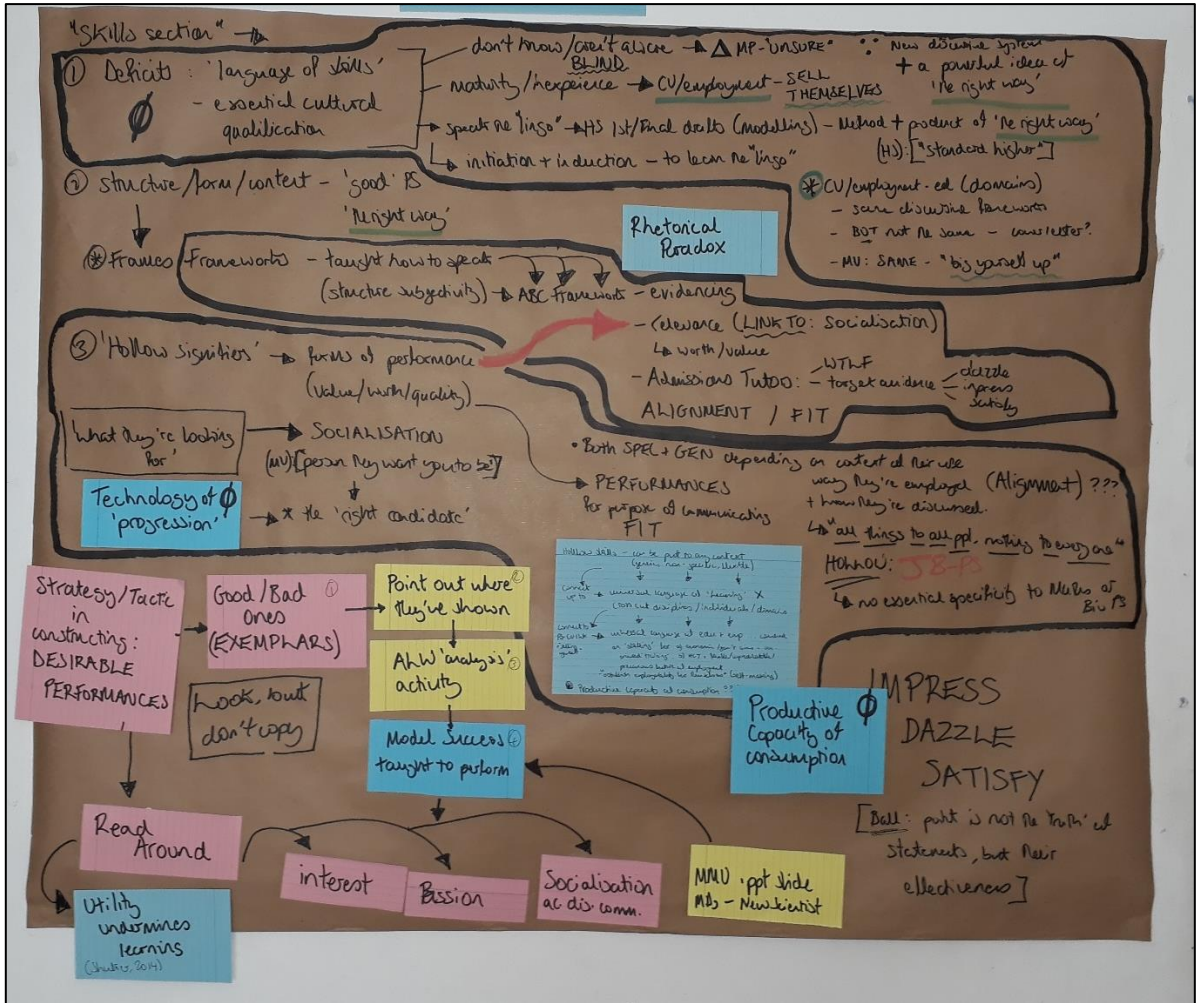 "Skills section" →
① Deficits: 'language of skills'
Ø - essential cultural
qualification
don't know/aren't aware → Δ MP-'UNSURE'
BLIND
maturity/inexperience → CV/employment - SELL
THEMSELVES
speak the "lingo" → HS 1st/Final drafts (modelling) - Method + product of 'the right way'
(HS): ["standard higher"]
↳ initiation + induction - to learn the "lingo"
∵ New discursive system
+ a powerful idea of
'the right way'
② Structure/form/content - 'good' PS
'the right way'
* CV/employment-ed (domains)
- same discursive frameworks
- BUT not the same - cover letter?
- MV: SAME - "big yourself up"
Rhetorical
Paradox
* Frames
Frameworks - taught how to speak
(structure subjectivity) → ABC Frameworks - evidencing
- relevance (LINK TO: socialisation)
↳ worth/value
- Admissions Tutor: - WTLF
- target audience - dazzle
impress
satisfy
ALIGNMENT / FIT
③ 'Hollow signifiers' → forms of performance
(value/worth/quality)
'What they're looking
for' → SOCIALISATION
(MV) ['person they want you to be']
→ * the 'right candidate'
Technology of Ø
'progression'
PERFORMANCES
for purpose of communicating
FIT
• Both SPEC + GEN depending on context of their use
way they're employed (Alignment) ???
+ how they're discussed.
↳ "all things to all ppl, nothing to everyone"
HOLLOW: J8-PS
↳ no essential specificity to
Hollow skills - can be put to any context
Productive capacity of consumption
Strategy/Tactic
in
constructing:
DESIRABLE
PERFORMANCES
Good/Bad ①
ones
(EXEMPLARS)
Look, but
don't copy
Point out where ②
they've shown
ALW 'analysis' ③
activity
Model success ④
taught to perform
Productive Ø
Capacity of
consumption
IMPRESS
DAZZLE
SATISFY
[Ball: point is not the 'truth' of
statements, but their
effectiveness]
Read
Around
interest
Passion
Socialisation
ac. dis. comm.
MMU .ppt slide
MDs - New Scientist
Utility
undermines
learning